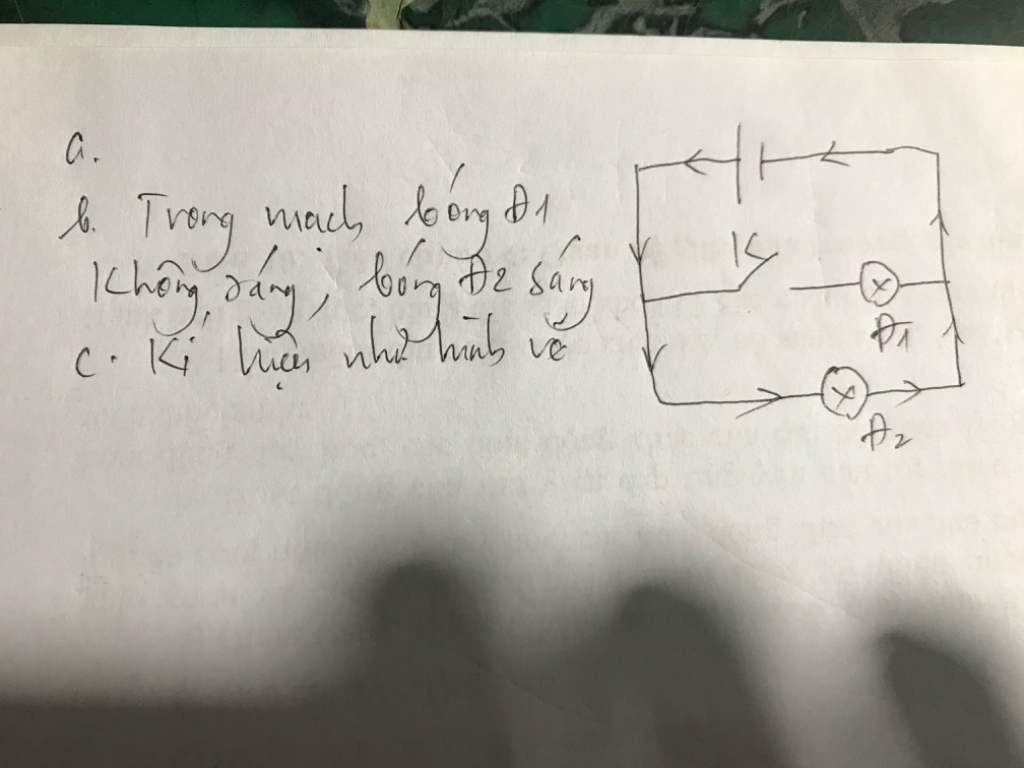 a.
b. Trong mạch bóng Đ1
Không sáng, bóng Đ2 sáng
c. Kí hiệu như hình vẽ
K
Đ1
Đ2